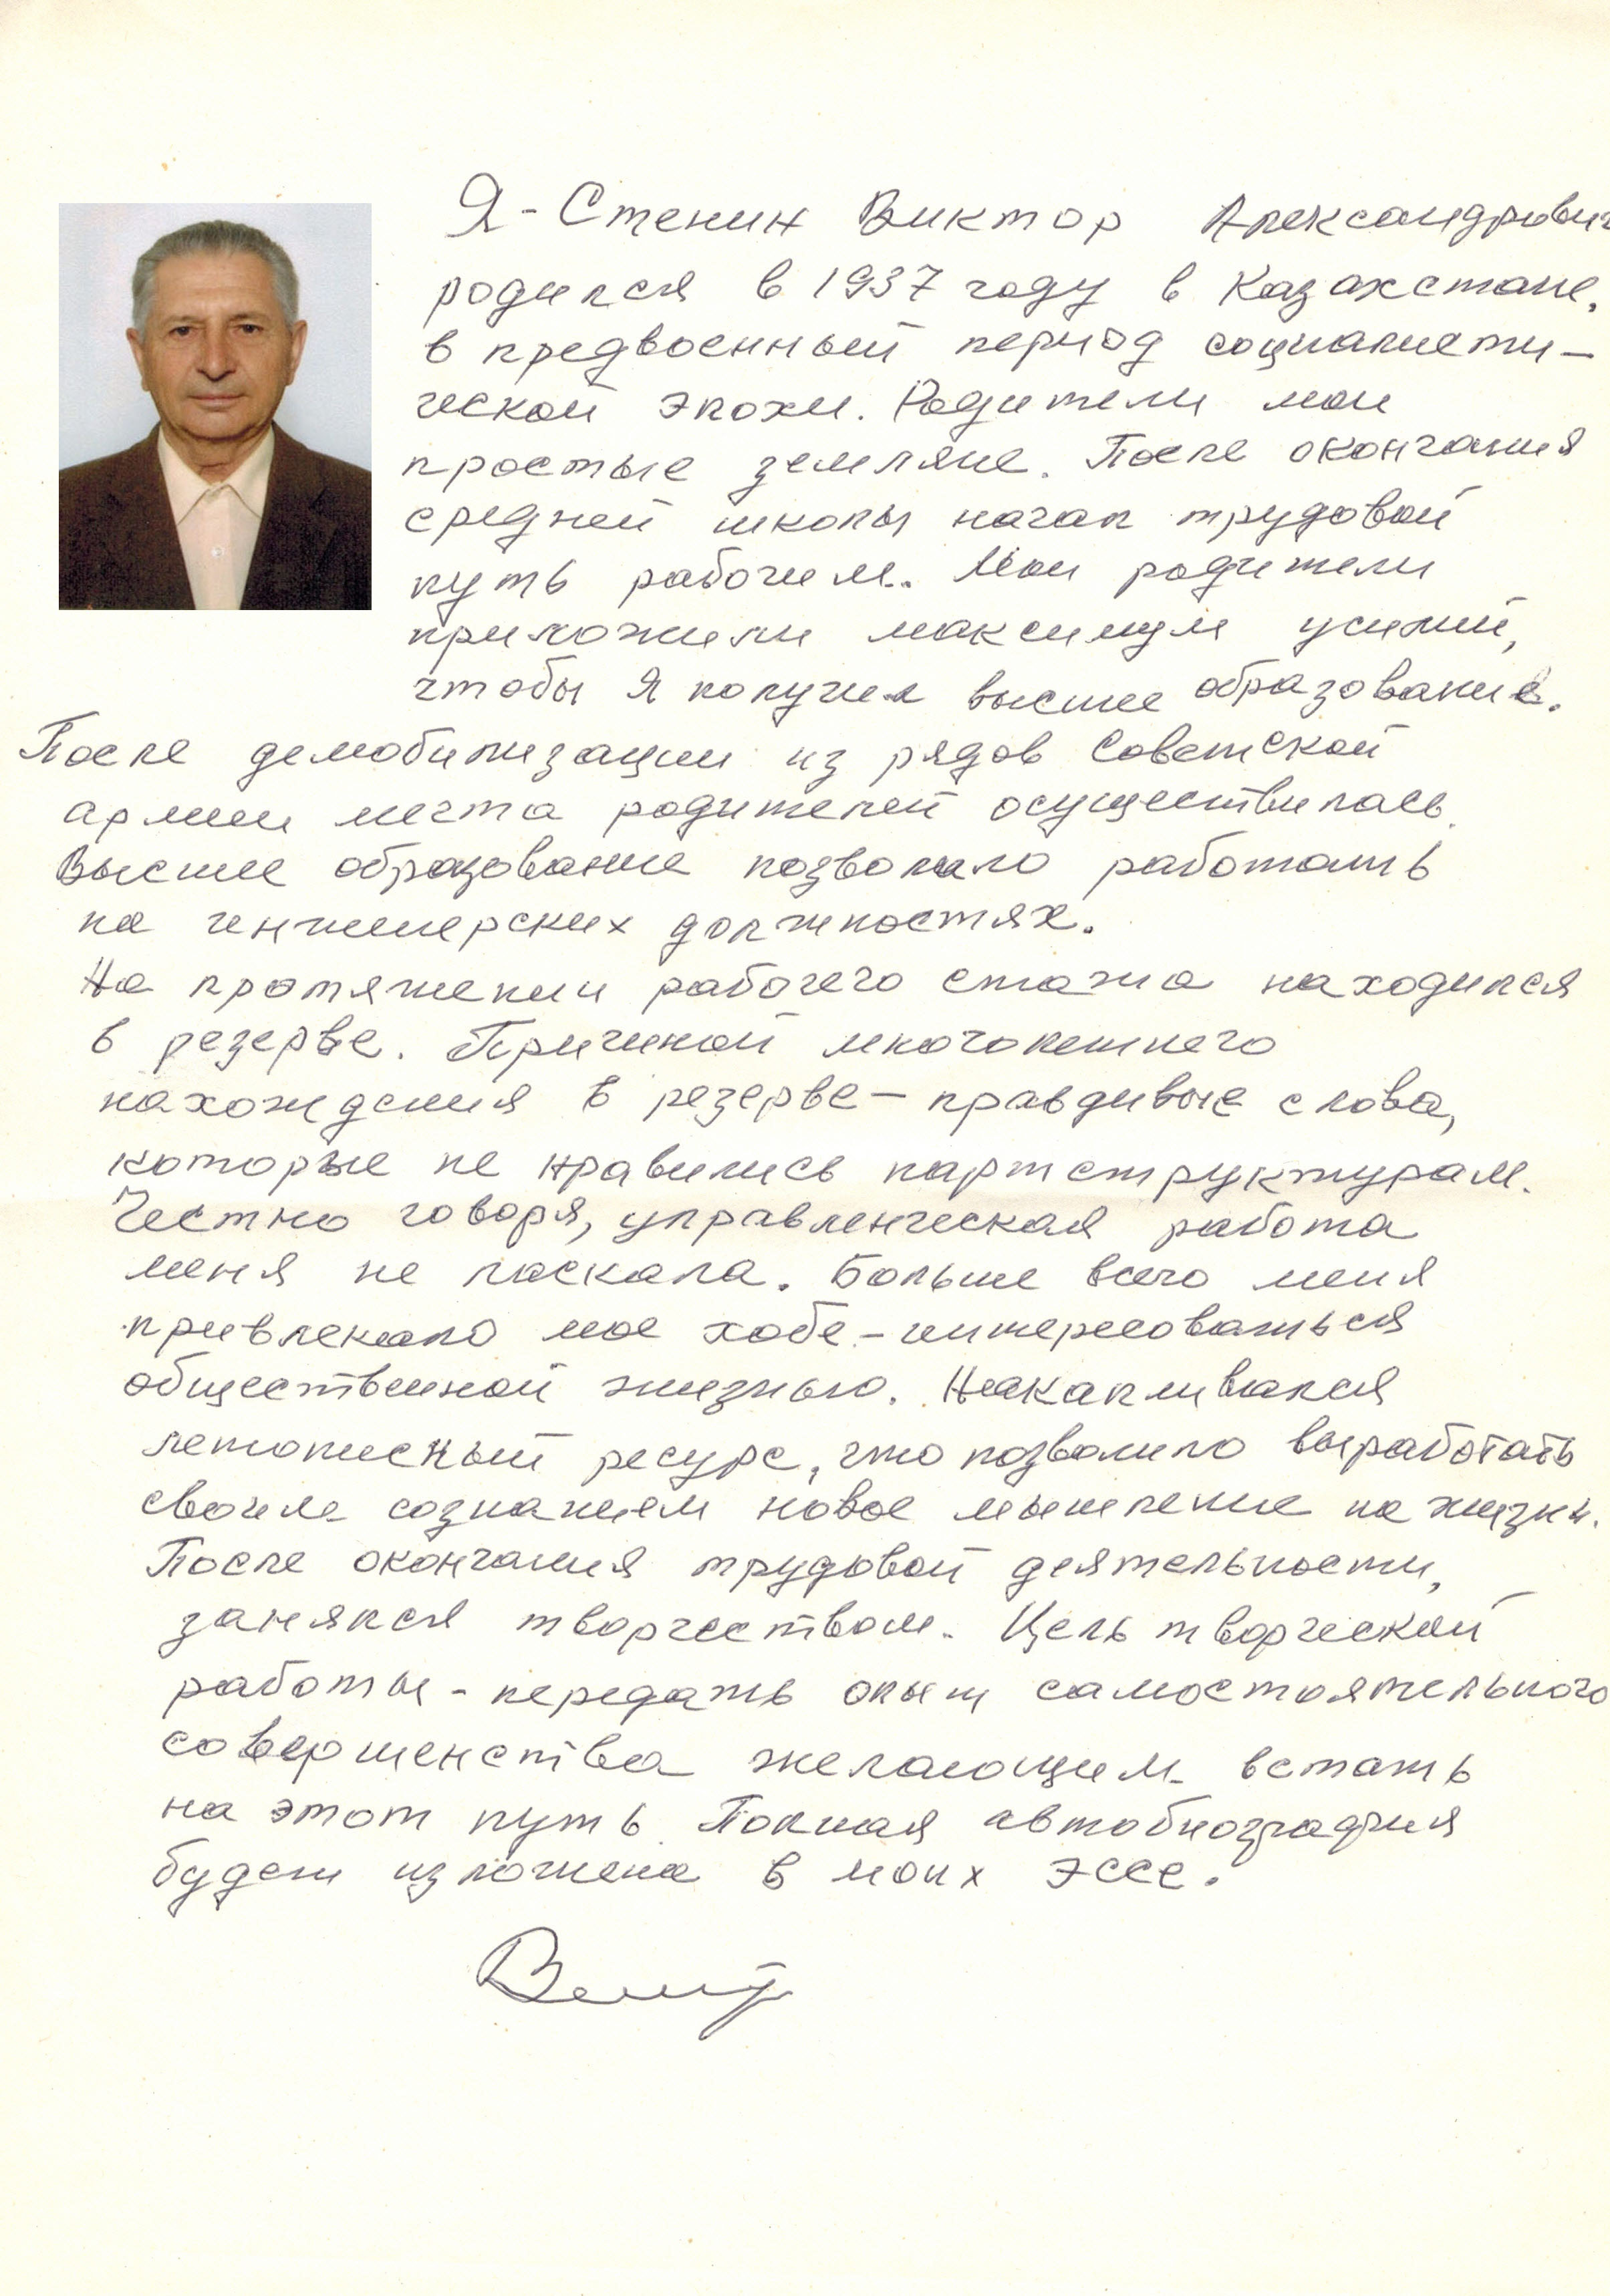 Я - Стенин Виктор Александрович
родился в 1937 году в Казахстане,
в предвоенный период социалисти-
ческой эпохи. Родители мои
простые земляне. После окончания
средней школы начал трудовой
путь рабочим. Мои родители
приложили максимум усилий,
чтобы я получил высшее образование.
После демобилизации из рядов Советской
армии мечта родителей осуществилась.
Высшее образование позволило работать
на инженерских должностях.
На протяжении рабочего стажа находился
в резерве. Причиной многолетнего
нахождения в резерве - правдивые слова,
которые не нравились партструктурам.
Честно говоря, управленческая работа
меня не ласкала. Больше всего меня
привлекало мое хобе - интересоваться
общественной жизнью. Накапливался
летописный ресурс, что позволило выработать
своим сознанием новое мышление на жизнь.
После окончания трудовой деятельности,
занялся творчеством. Цель творческой
работы - передать опыт самостоятельного
совершенства желающим встать
на этот путь. Полная автобиография
будет изложена в моих эссе.